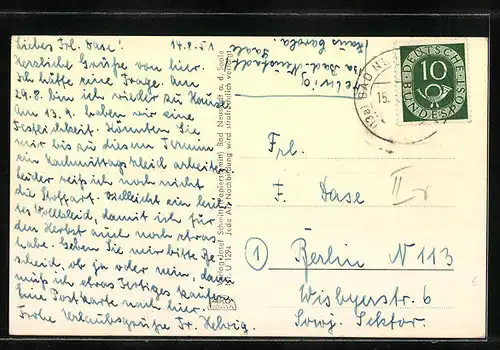 Liebes Frl. Dase! 14.8.51
Herzliche Grüße von hier.
Ich hätte eine Frage. Am
29.8. bin ich wieder zu Hause
Am 13.9. haben wir eine
Festlichkeit. Könnten Sie
mir bis zu diesem Termin
ein Nachmittagskleid arbeiten
leider weiß ich noch nicht
die Stoffart. Vielleicht ein leich-
tes Wollkleid, damit ich für
den Herbst auch noch etwas
habe. Geben Sie mir bitte Be-
scheid, ob ja oder nein, dann
muß ich etwas Fertiges kaufen.
Eine Postkarte nach hier.
Frohe Urlaubsgrüße Fr. Helwig.
Verlag Josef Schmitt (Papierschmitt) Bad Neustadt a. d. Saale
Nr. U 1294 Jede Art Nachbildung wird strafrechtlich verfolgt
Helwig
Bad Neustadt
Saale
Haus Carola.
BAD NE
15.
DEUTSCHE
BUNDESPOST
10
Frl.
F. Dase
II r
1 Berlin N 113
Wisbyerstr. 6
Sowj. Sektor.